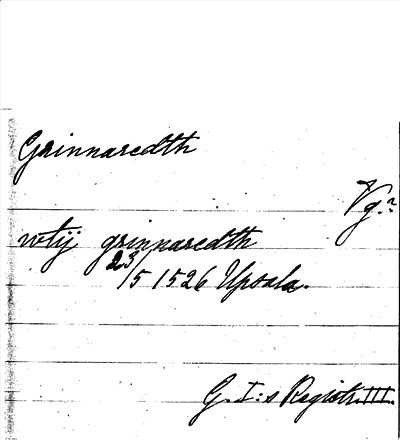 Grinnaredth
Vg.?
vtij grinnaredth
23/5 1526 Upsala.
G. I:s Registr. III.